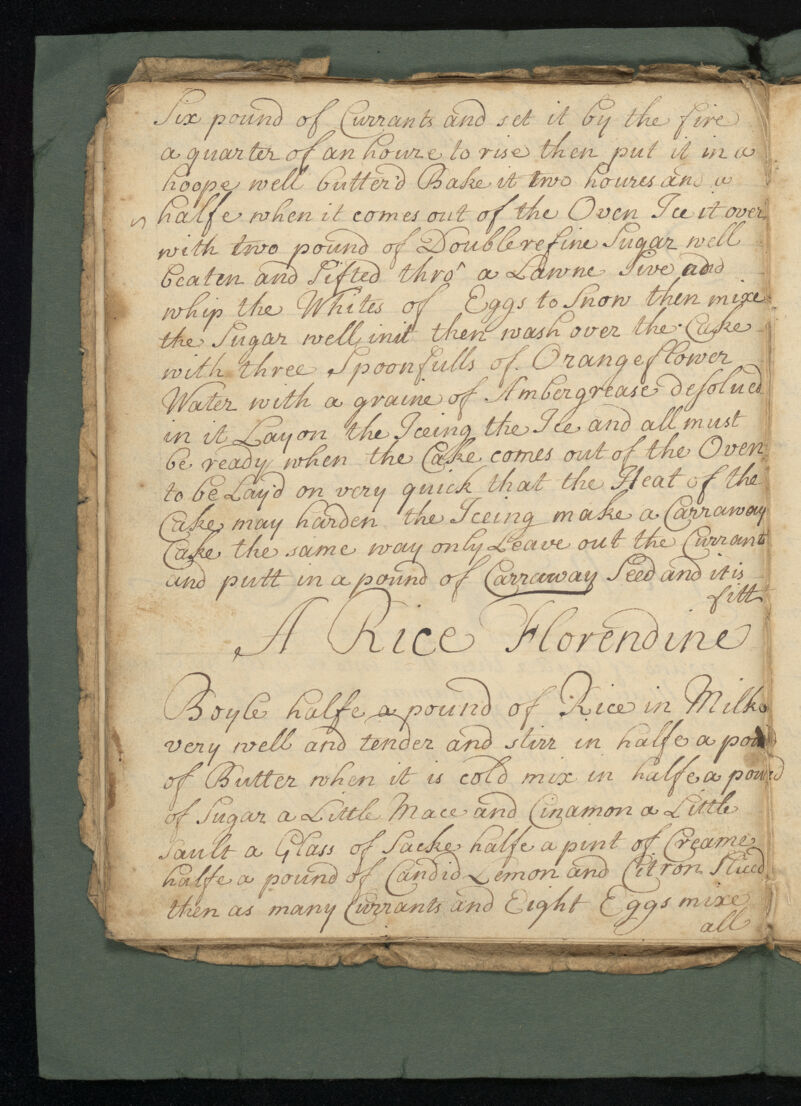 Six pound of Currants and set it by the fire
a quarter of an houre to rise then put it in a
hoope well butter'd Bake it two houres and a
halfe when it comes out of the Oven Ice it over
with two pound of Double refine Sugar well
beaten and Sifted thro^ a Lawne Sive and
whip the Whites of Eggs to Snow then mixe
the Sugar well init then wash over the Cake
with three Spoonfulls of Orangeflower
Water with a graine of Ambergrease desolued
in it Lay on the Iceing the Ice and all must
be ready when the Cake comes out of the Oven
to be Lay'd on very quick that the Heat of the
Cake may harden the Iceing make a Carraway
Cake the same way only Leave out the Currant
and putt in a pound of Carraway Seed and it is
fitt
A Rice Florendine
Boyle halfe a pound of Rice in Milke
very well and tender and stirr in halfe a pound
of Butter when it is cold mix in halfe a pound
of Sugar a Little Mace and Cinamon a Little
Sault a Glass of Sacke halfe a pint of Creame
halfe a pound of Candid Lemon and Citron Sliced
then as many Currants and Eight Eggs mixe
all